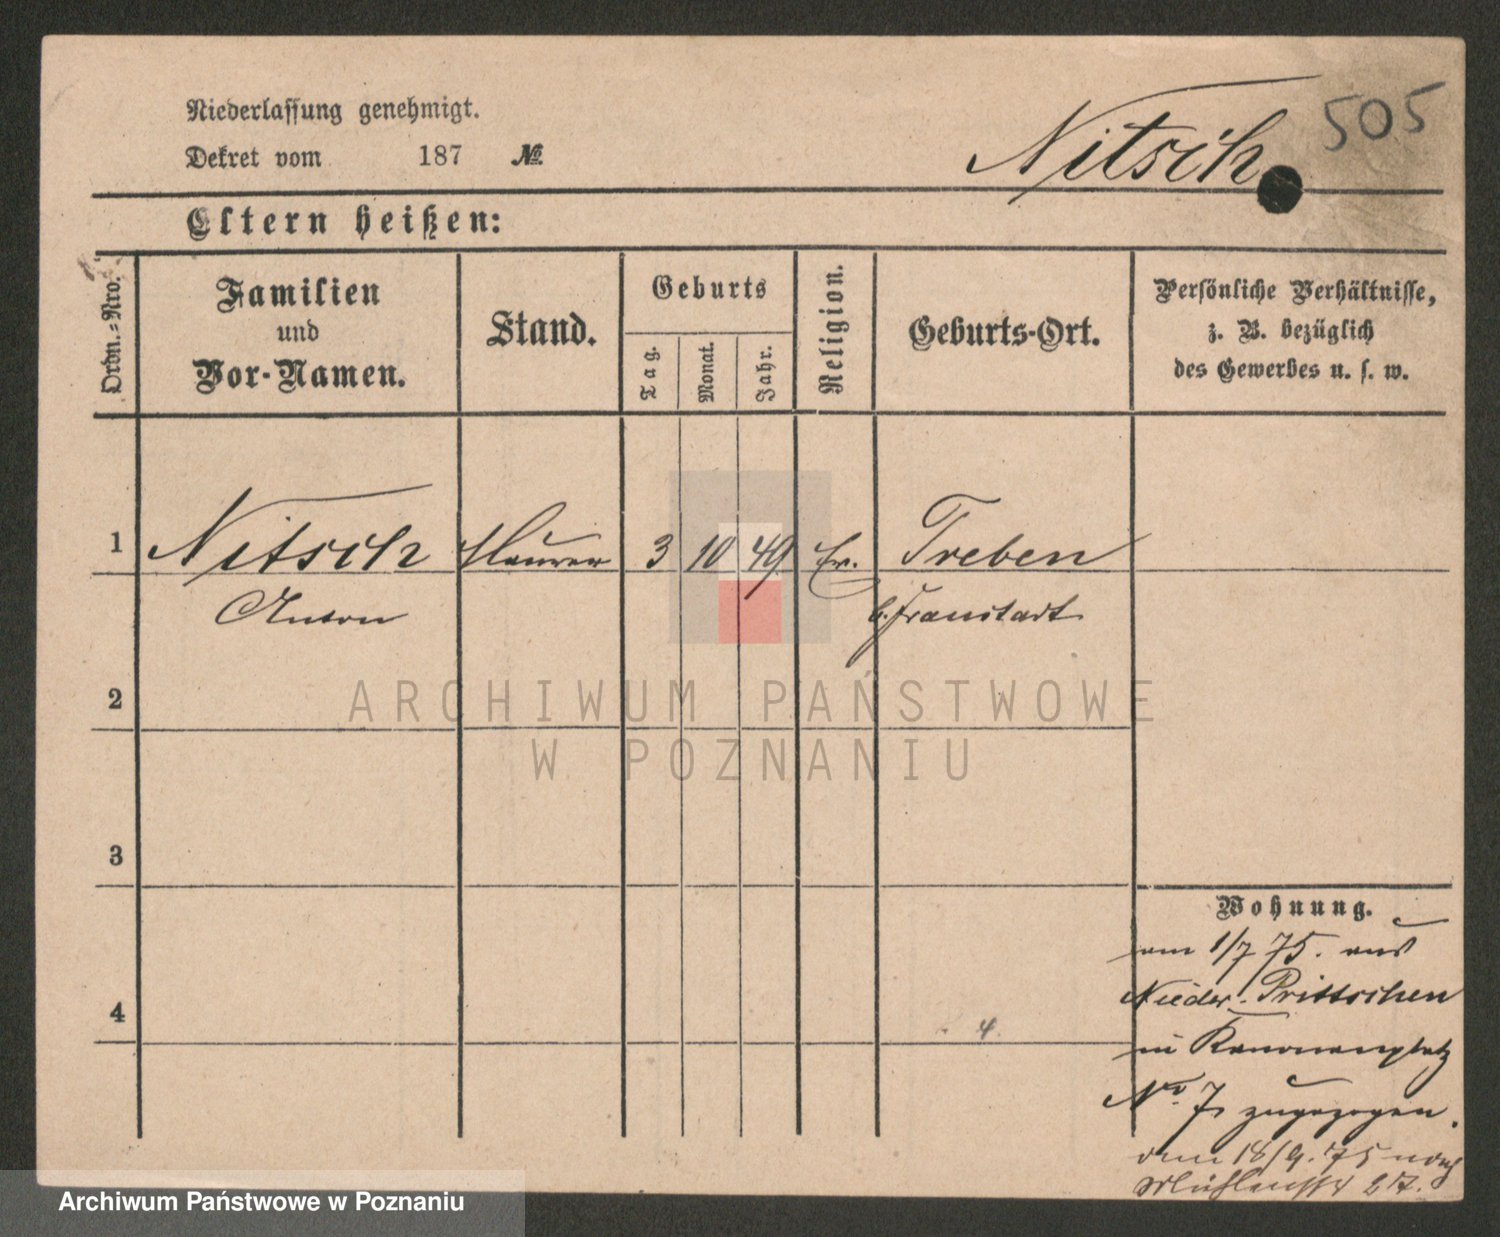 Niederlassung genehmigt.
Dekret vom 187 №
Nitsch
505
Eltern heißen:
Ordn.-Nro.
Familien
und
Vor-Namen.
Stand.
Geburts
Tag.
Monat.
Jahr.
Religion.
Geburts-Ort.
Persönliche Verhältnisse,
z. B. bezüglich
des Gewerbes u. s. w.
1 Nitsch Maurer 3 10 49 Ev. Treben
Anton b. Fraustadt
ARCHIWUM PAŃSTWOWE
W POZNANIU
2
3
4
4
Wohnung.
am 1/7 75. aus
Nieder-Prittschen
in Kanonenplatz
No 7 zugezogen.
dem 18/9. 75 nach
Mühlenstr 27.
Archiwum Państwowe w Poznaniu